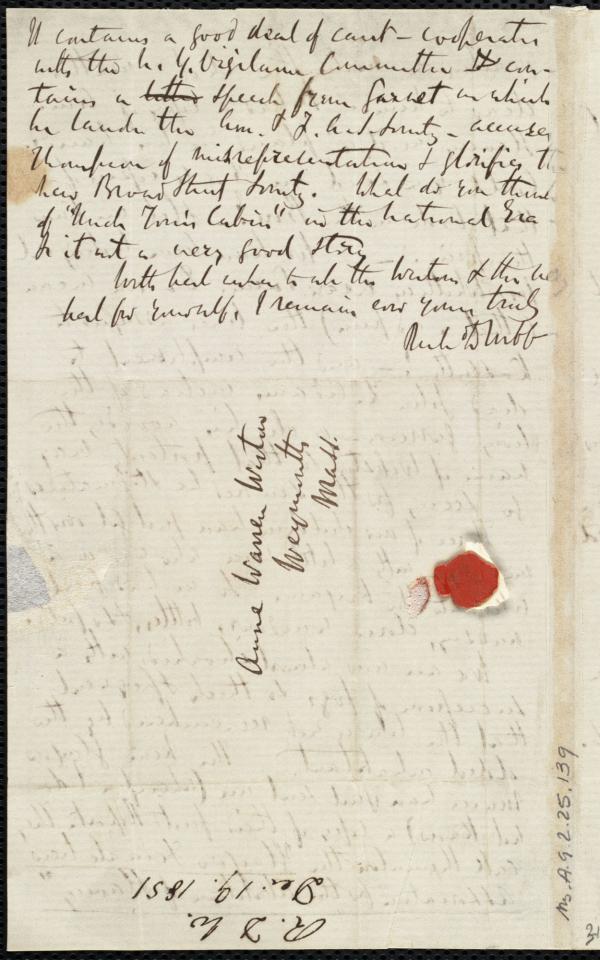 It contains a good deal of cant - cooperates
with the N. Y. Vigilance Committee It con-
tains a letter speech from Garnet in which
he lauds the Am. & F. A. S. Society - accuses
Thompson of misrepresentation & glorifies the
New Broad Street Society. What do you think
of "Uncle Tom's Cabin" in the National Era
Is it not a very good story
With best wishes to all the Westons & the
best for yourself, I remain ever yours truly
Rich D Webb
Anne Warren Weston
Weymouth
Mass.
R. D. W.
Dec. 19. 1851
Ms. A.9.2.25.139